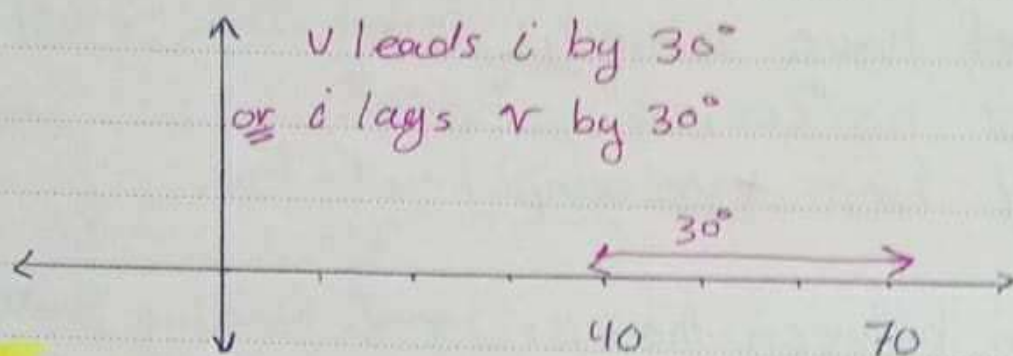 v leads i by 30°
or i lags v by 30°
30°
40 70